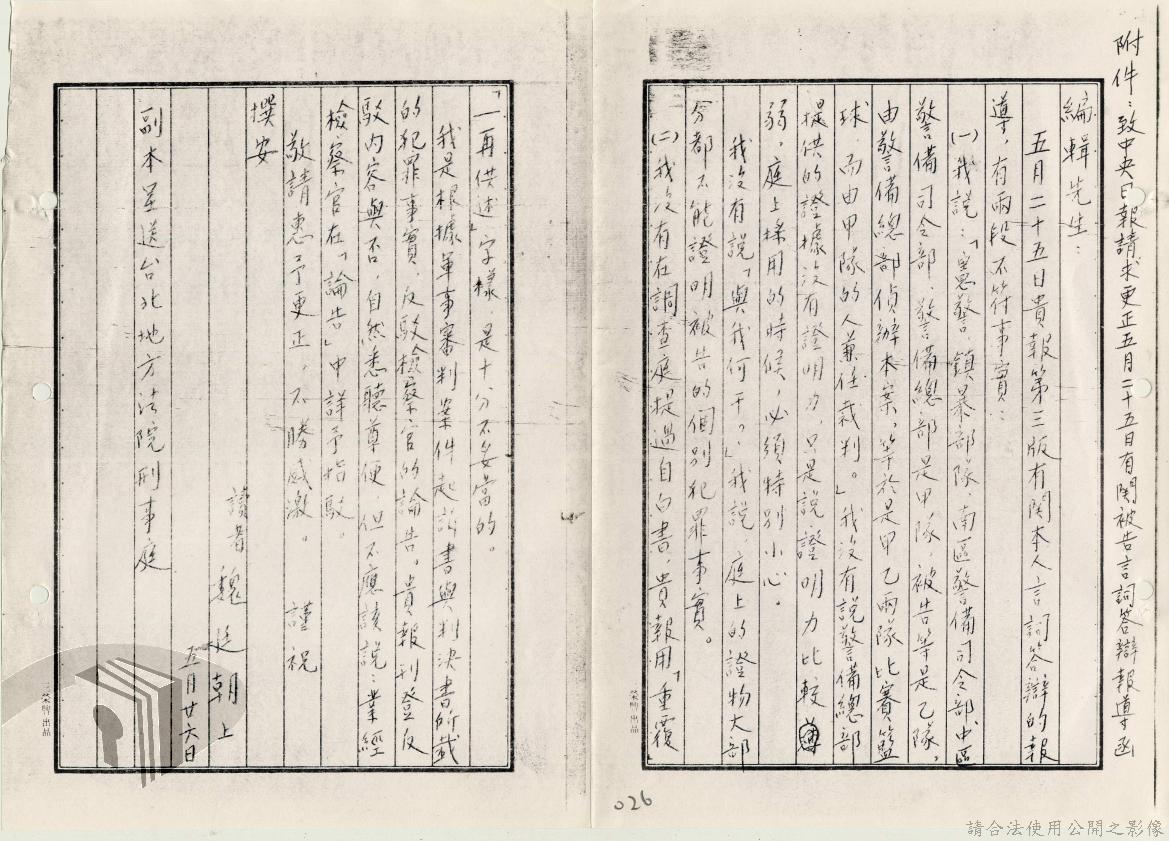 附件:致中央日報請求更正五月二十五日有関被告言詞答辯報導函
編輯先生:
五月二十五日貴報第三版有関本人言詞答辯的報
導,有兩段不符事實:
(一)我說:「憲警、鎮暴部隊、南區警備司令部、中區
警備司令部、警備總部是甲隊,被告等是乙隊,
由警備總部偵辦本案,等於是甲乙兩隊比賽籃
球,而由甲隊的人兼任裁判。」我沒有說警備總部
提供的證據沒有證明力,只是說證明力比較薄
弱,庭上採用的時候,必須特別小心。
我沒有說「與我何干。」我說,庭上的證物大部
分都不能證明被告的個別犯罪事實。
(二)我沒有在調查庭提過自白書,貴報用「重覆」
「一再供述」字樣,是十分不妥當的。
我是根據軍事審判案件起訴書與判決書所載
的犯罪事實,反駁檢察官的論告。貴報刊登反
駁内容與否,自然悉聽尊便,但不應該說:業經
檢察官在「論告」中詳予指駁。
敬請惠予更正,不勝感激。 謹祝
撰安
讀者 魏廷朝上
五月廿六日
副本呈送台北地方法院刑事庭
榮牌出品
榮牌出品
026
請合法使用公開之影像